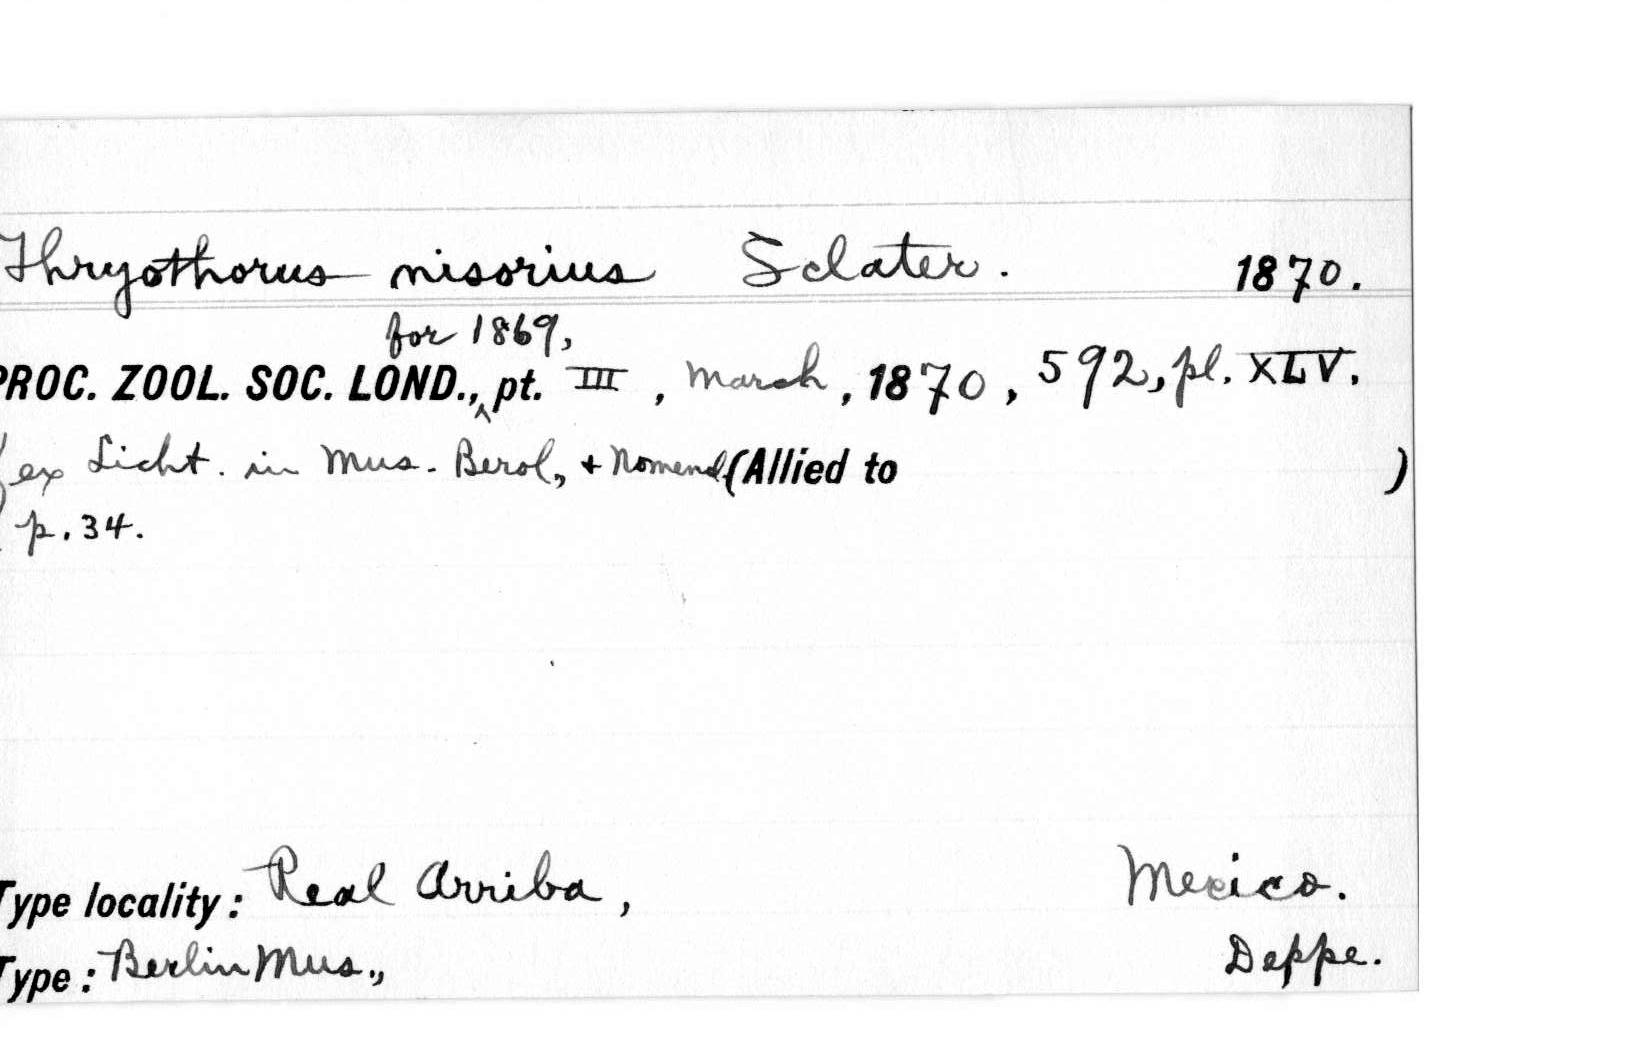 Thryothorus nisorius Sclater. 1870.
for 1869,
PROC. ZOOL. SOC. LOND., ^ pt. III, March, 1870, 592, pl. XLV.
(ex Licht. in Mus. Berol., + Nomencl. (Allied to )
p. 34.
Type locality: Real Arriba, Mexico.
Type: Berlin Mus., Deppe.